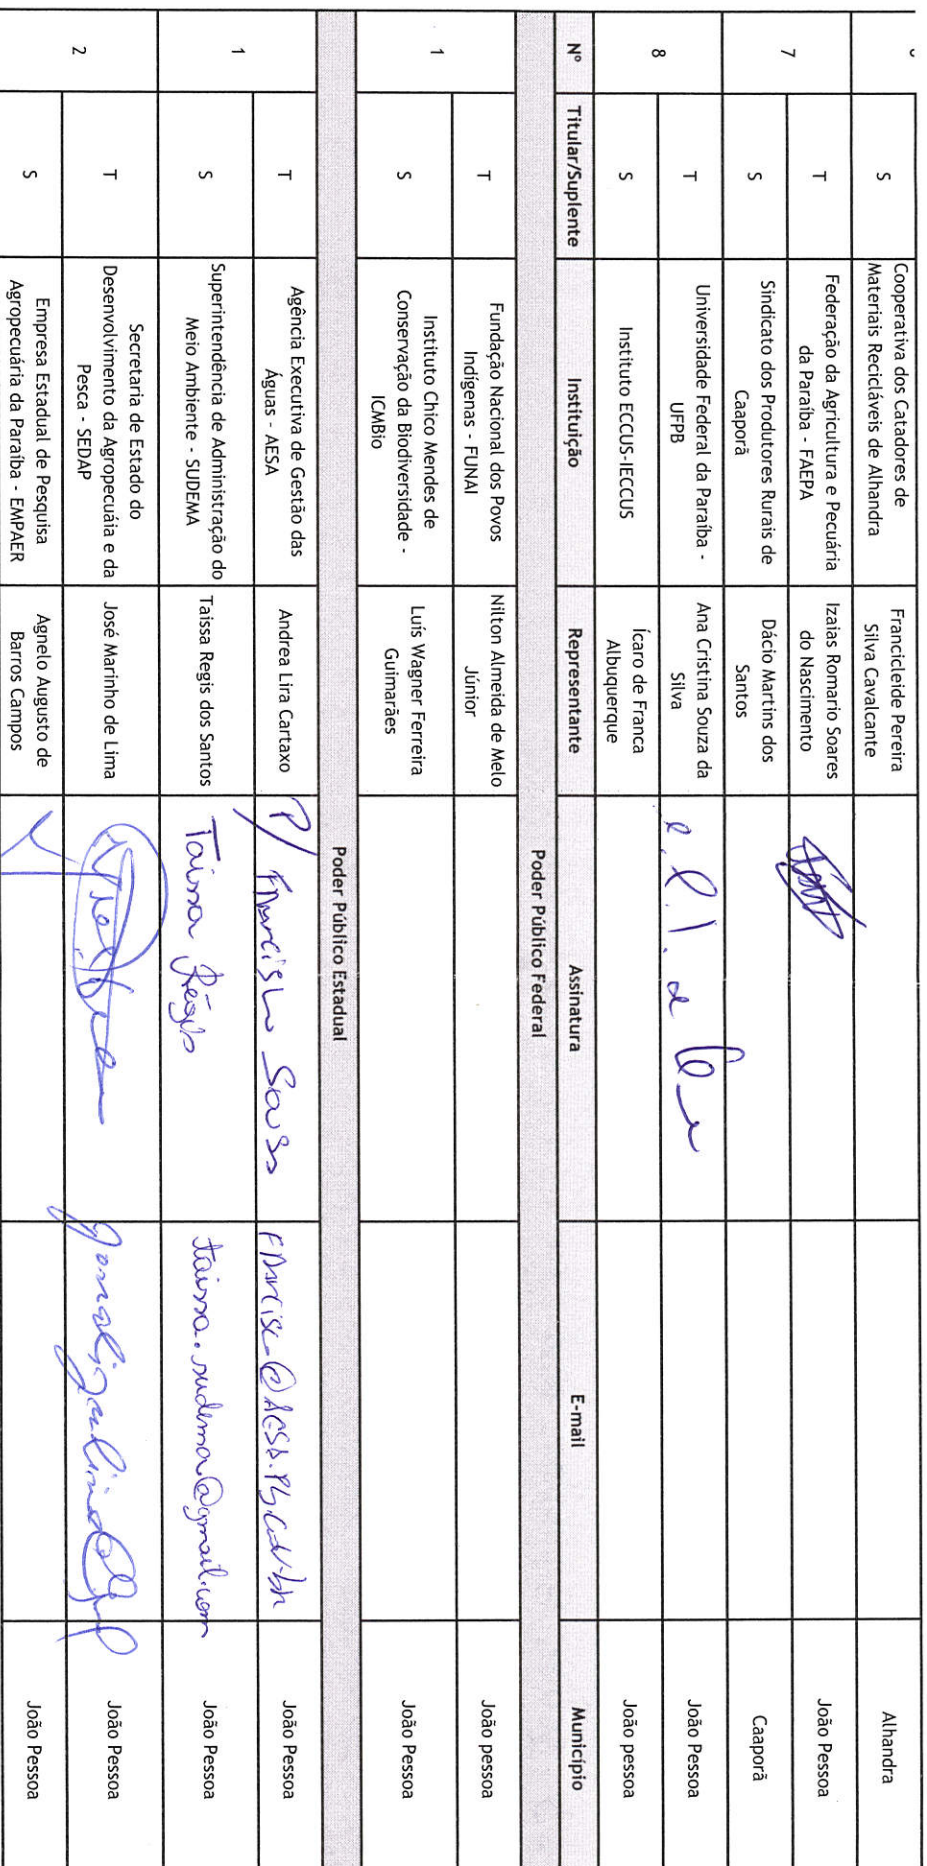 S Cooperativa dos Catadores de Materiais Recicláveis de Alhandra Francicleide Pereira Silva Cavalcante Alhandra
7 T Federação da Agricultura e Pecuária da Paraíba - FAEPA Izaias Romario Soares do Nascimento João Pessoa
S Sindicato dos Produtores Rurais de Caaporã Dácio Martins dos Santos Caaporã
8 T Universidade Federal da Paraíba - UFPB Ana Cristina Souza da Silva João Pessoa
S Instituto ECCUS-IECCUS Ícaro de Franca Albuquerque João pessoa
Nº Titular/Suplente Instituição Representante Assinatura E-mail Município
Poder Público Federal
1 T Fundação Nacional dos Povos Indígenas - FUNAI Nilton Almeida de Melo Júnior João pessoa
S Instituto Chico Mendes de Conservação da Biodiversidade - ICMBio Luis Wagner Ferreira Guimarães João Pessoa
Poder Público Estadual
1 T Agência Executiva de Gestão das Águas - AESA Andrea Lira Cartaxo P/ João Pessoa
S Superintendência de Administração do Meio Ambiente - SUDEMA Taissa Regis dos Santos Taissa Régis taissa.sudema@gmail.com João Pessoa
2 T Secretaria de Estado do Desenvolvimento da Agropecuáia e da Pesca - SEDAP José Marinho de Lima João Pessoa
S Empresa Estadual de Pesquisa Agropecuária da Paraíba - EMPAER Agnelo Augusto de Barros Campos João Pessoa